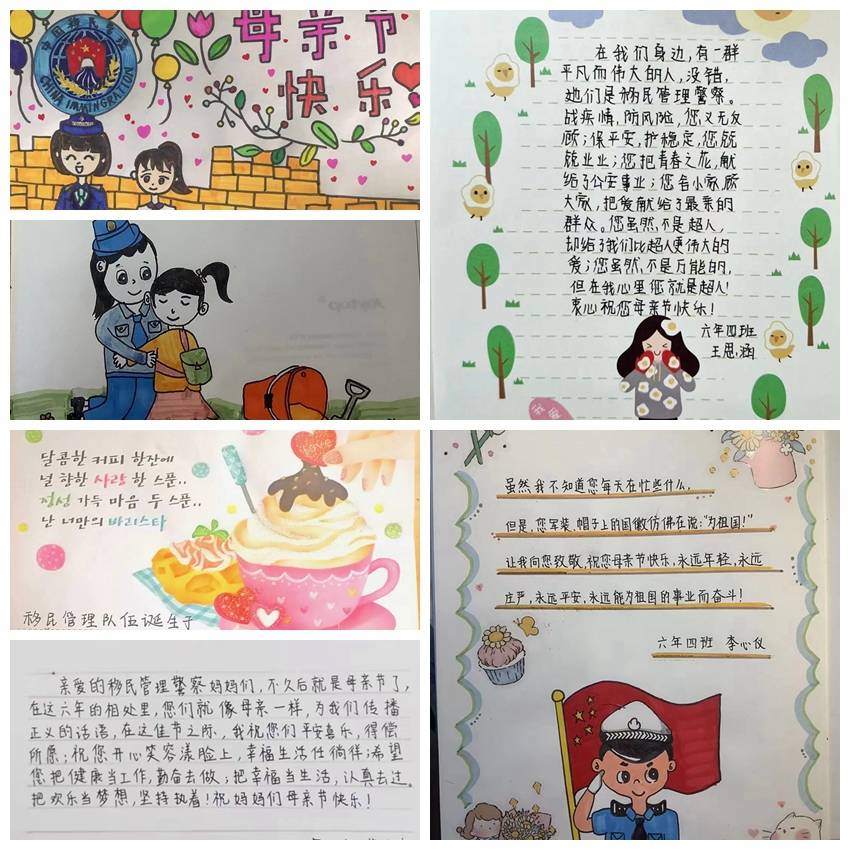 母亲节
快乐
中国移民管理
CHINA IMMIGRATION
在我们身边，有一群
平凡而伟大的人，没错，
她们是移民管理警察。
战疫情，防风险，您义无反
顾；保平安，护稳定，您兢
兢业业；您把青春之花，献
给了公安事业；您舍小家，顾
大家，把爱献给了最亲的
群众。您虽然，不是超人，
却给了我们比超人更伟大的
爱；您虽然，不是万能的，
但在我心里您就是超人！
衷心祝您母亲节快乐！
六年四班
王思涵
달콤한 커피 한잔에
널 향한 사랑 한 스푼..
정성 가득 마음 두 스푼..
난 너만의 바리스타
Love
移民管理队伍诞生于
亲爱的移民管理警察妈妈们，不久后就是母亲节了，
在这六年的相处里，您们就像母亲一样，为我们传播
正义的话语，在这佳节之际，我祝您们平安喜乐，得偿
所愿；祝您开心笑容漾脸上，幸福生活任徜徉；希望
您把健康当工作，勤奋去做；把幸福当生活，认真去过。
把欢乐当梦想，坚持执着！祝妈妈们母亲节快乐！
虽然我不知道您每天在忙些什么，
但是，您军装、帽子上的国徽仿佛在说："为祖国！"
让我向您致敬，祝您母亲节快乐，永远年轻，永远
庄严，永远平安，永远能为祖国的事业而奋斗！
六年四班 李心仪